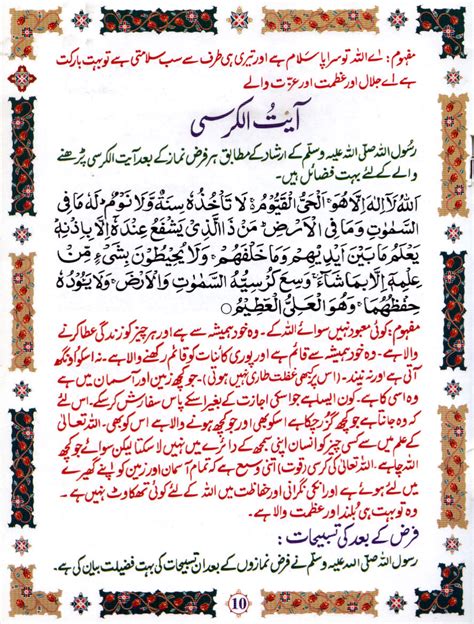 مفہوم: اے اللہ تو سراپا سلام ہے اور تیری ہی طرف سے سب سلامتی ہے تو بہت بابرکت
ہے اے جلال اور عظمت اور عزت والے
آیتُ الکرسی
رسُول اللہ صلی اللہ علیہ وسلم کے ارشاد کے مطابق ہر فرض نماز کے بعد آیت الکرسی پڑھنے
والے کے لئے بہت فضائل ہیں۔
اَللّٰهُ لَاۤ اِلٰهَ اِلَّا هُوَ ۚ اَلْحَیُّ الْقَیُّوْمُ ۚ لَا تَاْخُذُهٗ سِنَةٌ وَّلَا نَوْمٌ ؕ لَهٗ مَا فِی
السَّمٰوٰتِ وَمَا فِی الْاَرْضِ ؕ مَنْ ذَا الَّذِیْ یَشْفَعُ عِنْدَهٗۤ اِلَّا بِاِذْنِهٖ ؕ
یَعْلَمُ مَا بَیْنَ اَیْدِیْهِمْ وَمَا خَلْفَهُمْ ۚ وَلَا یُحِیْطُوْنَ بِشَیْءٍ مِّنْ
عِلْمِهٖۤ اِلَّا بِمَا شَآءَ ۚ وَسِعَ كُرْسِیُّهُ السَّمٰوٰتِ وَالْاَرْضَ ۚ وَلَا یَئُوْدُهٗ
حِفْظُهُمَا ۚ وَهُوَ الْعَلِیُّ الْعَظِیْمُ ○
مفہوم: کوئی معبود نہیں سوائے اللہ کے۔ وہ خود ہمیشہ سے ہے اور ہر چیز کو زندگی عطا کرنے
والا ہے۔ وہ خود ہمیشہ سے قائم ہے اور پوری کائنات کو قائم رکھنے والا ہے۔ نہ اسکو اونگھ
آتی ہے اور نہ نیند۔ (اس پر کبھی غفلت طاری نہیں ہوتی) ۔ جو کچھ زمین اور آسمان میں ہے
وہ اسی کا ہے۔ کون ایسا ہے جو اسکی اجازت کے بغیر اسکے پاس سفارش کر سکے۔
کہ وہ جانتا ہے جو کچھ گزر چکا ہے اسکو بھی۔ اور جو کچھ ہونے والا ہے اس کو بھی۔ اللہ تعالیٰ
کے علم میں سے کسی چیز کو انسان اپنی سمجھ کے دائرے میں نہیں لا سکتا لیکن سوائے جو کچھ
اللہ چاہے۔ اللہ تعالیٰ کی کرسی (قوت) اتنی وسیع ہے کہ تمام آسمان اور زمین کو اپنے گھیرے
میں لئے ہوئے ہے اور انکی نگرانی اور حفاظت میں اللہ کے لئے کوئی تھکاوٹ نہیں ہے۔
وہ تو بہت ہی بُلند اور عظمت والا ہے۔
فرض کے بعد کی تسبیحات :
رسول اللہ صلی اللہ علیہ وسلم نے فرض نمازوں کے بعد ان تسبیحات کی بہت فضیلت بیان کی ہے۔
10